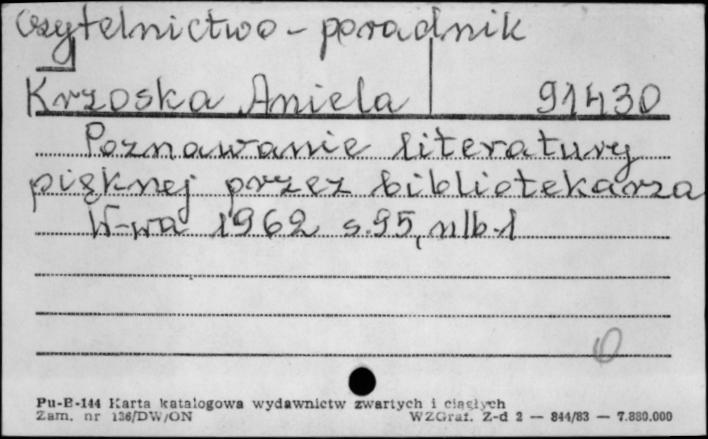 Czytelnictwo - poradnik
Krzoska Aniela 91430
Poznawanie literatury
pięknej przez bibliotekarza
W-wa 1962 s.95, nlb.1
Pu-B-144 Karta katalogowa wydawnictw zwartych i ciągłych
Zam. nr 136/DW/ON WZGraf. Z-d 2 — 844/83 — 7.880.000